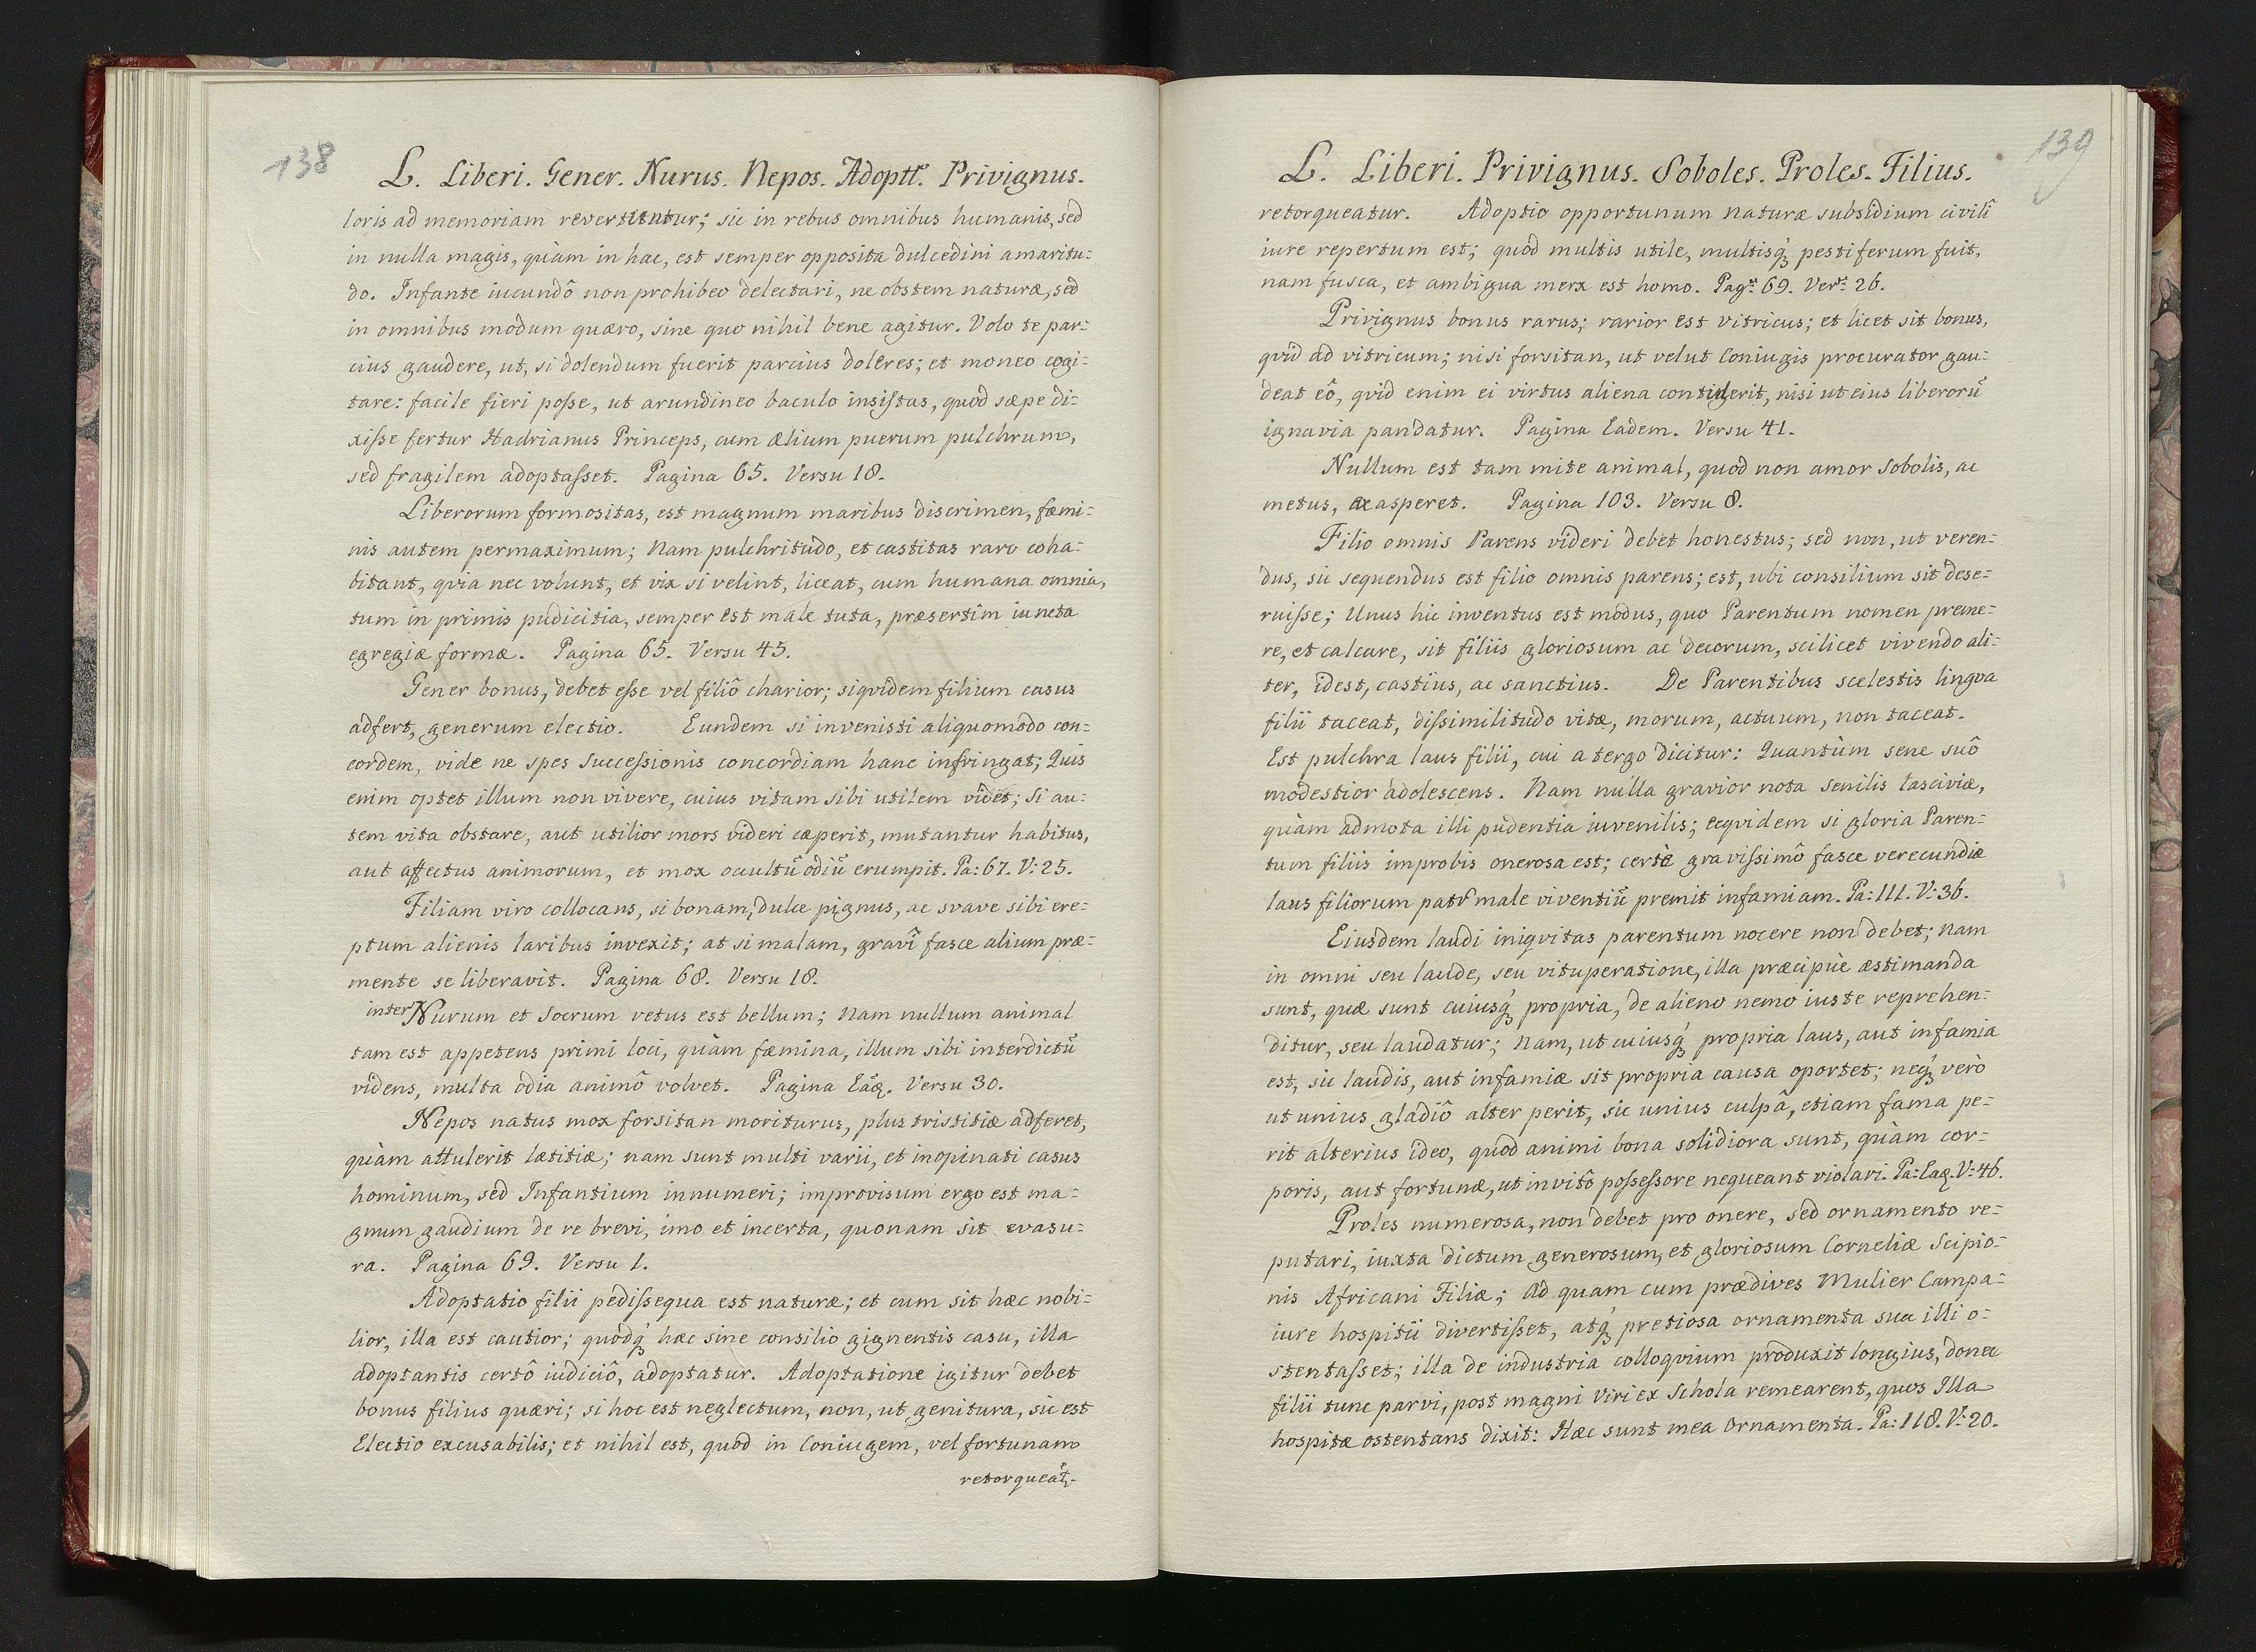 138
L. Liberi. Gener. Nurus. Nepos. Adoptt͂. Privignus.
loris ad memoriam revertuntur; sic in rebus omnibus humanis, sed
in nulla magis, quàm in hac, est semper opposita dulcedini amaritu=
do. Infante iucundô non prohibeo delectari, ne obstem naturæ, sed
in omnibus modum quæro, sine quo nihil bene agitur. Volo te par=
cius gaudere, ut, si dolendum fuerit parcius doleres; et moneo cogi=
tare: facile fieri posse, ut arundineo baculo insistas, quod sæpe di=
xisse fertur Hadrianus Princeps, cum Ælium puerum pulchrum,
sed fragilem adoptasset. Pagina 65. Versu 18.
Liberorum formositas, est magnum maribus discrimen, fæmi=
nis autem permaximum; Nam pulchritudo, et castitas raro coha=
bitant, qvia nec volunt, et vix si velint, liceat, cum humana omnia,
tum in primis pudicitia, semper est male tuta, præsertim iuncta
egregiæ formæ. Pagina 65. Versu 45.
Gener bonus, debet esse vel filiô charior; siqvidem filium casus
adfert, generum electio. Eundem si invenisti aliquomodo con=
cordem, vide ne spes successionis concordiam hanc infringat; Quis
enim optet illum non vivere, cuius vitam sibi utilem videt; si au=
tem vita obstare, aut utilior mors videri cæperit, mutantur habitus,
aut affectus animorum, et mox ocultu᷑ odiu᷑ erumpit. Pa: 67. V: 25.
Filiam viro collocans, si bonam, dulce pignus, ac svave sibi ere=
ptum alienis laribus invexit; at si malam, gravî fasce alium præ=
mente se liberavit. Pagina 68. Versu 18.
inter Nurum et Socrum vetus est bellum; Nam nullum animal
tam est appetens primi loci, quàm fæmina, illum sibi interdictu᷑
videns, multa odia animô volvet. Pagina Eaꝗ. Versu 30.
Nepos natus mox forsitan moriturus, plus tristitiæ adferet,
quàm attulerit lætitiæ; nam sunt multi varii, et inopinati casus
hominum, sed Infantium innumeri; improvisum ergo est ma=
gnum gaudium de re brevi, imo et incerta, quonam sit evasu=
ra. Pagina 69. Versu 1.
Adoptatio filii pedissequa est naturæ; et cum sit hæc nobi=
lior, illa est cautior; quodq́ꝫ hæc sine consilio gignentis casu, illa
adoptantis certô iudiciô, adoptatur. Adoptatione igitur debet
bonus filius quæri; si hoc est neglectum, non, ut genitura, sic est
Electio excusabilis; et nihil est, quod in Coniugem, vel fortunam
retorqueat᷑.
139
L. Liberi. Privignus. Soboles. Proles. Filius.
retorqueatur. Adoptio opportunum naturæ subsidium civilî
iure repertum est; quod multis utile, multisq́ꝫ pestiferum fuit,
nam fusca, et ambigua merx est homo. Pagᵃ: 69. Verˢ: 26.
Privignus bonus rarus; rarior est vitricus; et licet sit bonus,
qvid ad vitricum; nisi forsitan, ut velut Coniugis procurator gau=
deat eô, qvid enim ei virtus aliena contulerit, nisi ut eius liberoru᷑
ignavia pandatur. Pagina Eadem. Versu 41.
Nullum est tam mite animal, quod non amor Sobolis, ac
metus, exasperet. Pagina 103. Versu 8.
Filio omnis Parens videri debet honestus; sed non, ut veren=
dus, sic sequendus est filio omnis parens; est, ubi consilium sit dese=
ruisse; Unus hic inventus est modus, quo Parentum nomen preme=
re, et calcare, sit filiis gloriosum ac decorum, scilicet vivendo ali=
ter, idest, castius, ac sanctius. De Parentibus scelestis lingva
filii taceat, dissimilitudo vitæ, morum, actuum, non taceat.
Est pulchra laus filii, cui a tergo dicitur: Quantùm sene suô
modestior adolescens. Nam nulla gravior nota senilis lasciviæ,
quàm admota illi pudentia iuvenilis; ecqvidem si gloria Paren=
tum filiis improbis onerosa est; certè gravissimô fasce verecundiæ
laus filiorum patr᷑ male viventiu᷑ premit infamiam. Pa: 111. V: 36.
Eiusdem laudi iniqvitas parentum nocere non debet; Nam
in omni seu laude, seu vituperatione, illa præcipùe æstimanda
sunt, quæ sunt cuiusq́ꝫ propria, de alieno nemo iuste reprehen=
ditur, seu laudatur; Nam, ut cuiusq́ꝫ propria laus, aut infamia
est, sic laudis, aut infamiæ sit propria causa oportet; neq́ꝫ verò
ut unius gladiô alter perit, sic unius culpâ, etiam fama pe=
rit alterius ideo, quod animi bona solidiora sunt, quàm cor=
poris, aut fortunæ, ut invitô possessore nequeant violari. Pa: Eaꝗ. V: 46.
Proles numerosa, non debet pro onere, sed ornamento re=
putari, iuxta dictum generosum, et gloriosum Corneliæ Scipio=
nis Africani Filiæ; Ad quam cum prædives Mulier Campa=
iure hospitii divertisset, atq́ꝫ pretiosa ornamenta sua illi o=
stentasset; illa de industria colloqvium produxit longius, donec
filii tunc parvi, post magni Viri ex Schola remearent, quos Illa
hospitæ ostentans dixit: Hæc sunt mea Ornamenta. Pa: 118. V: 20.